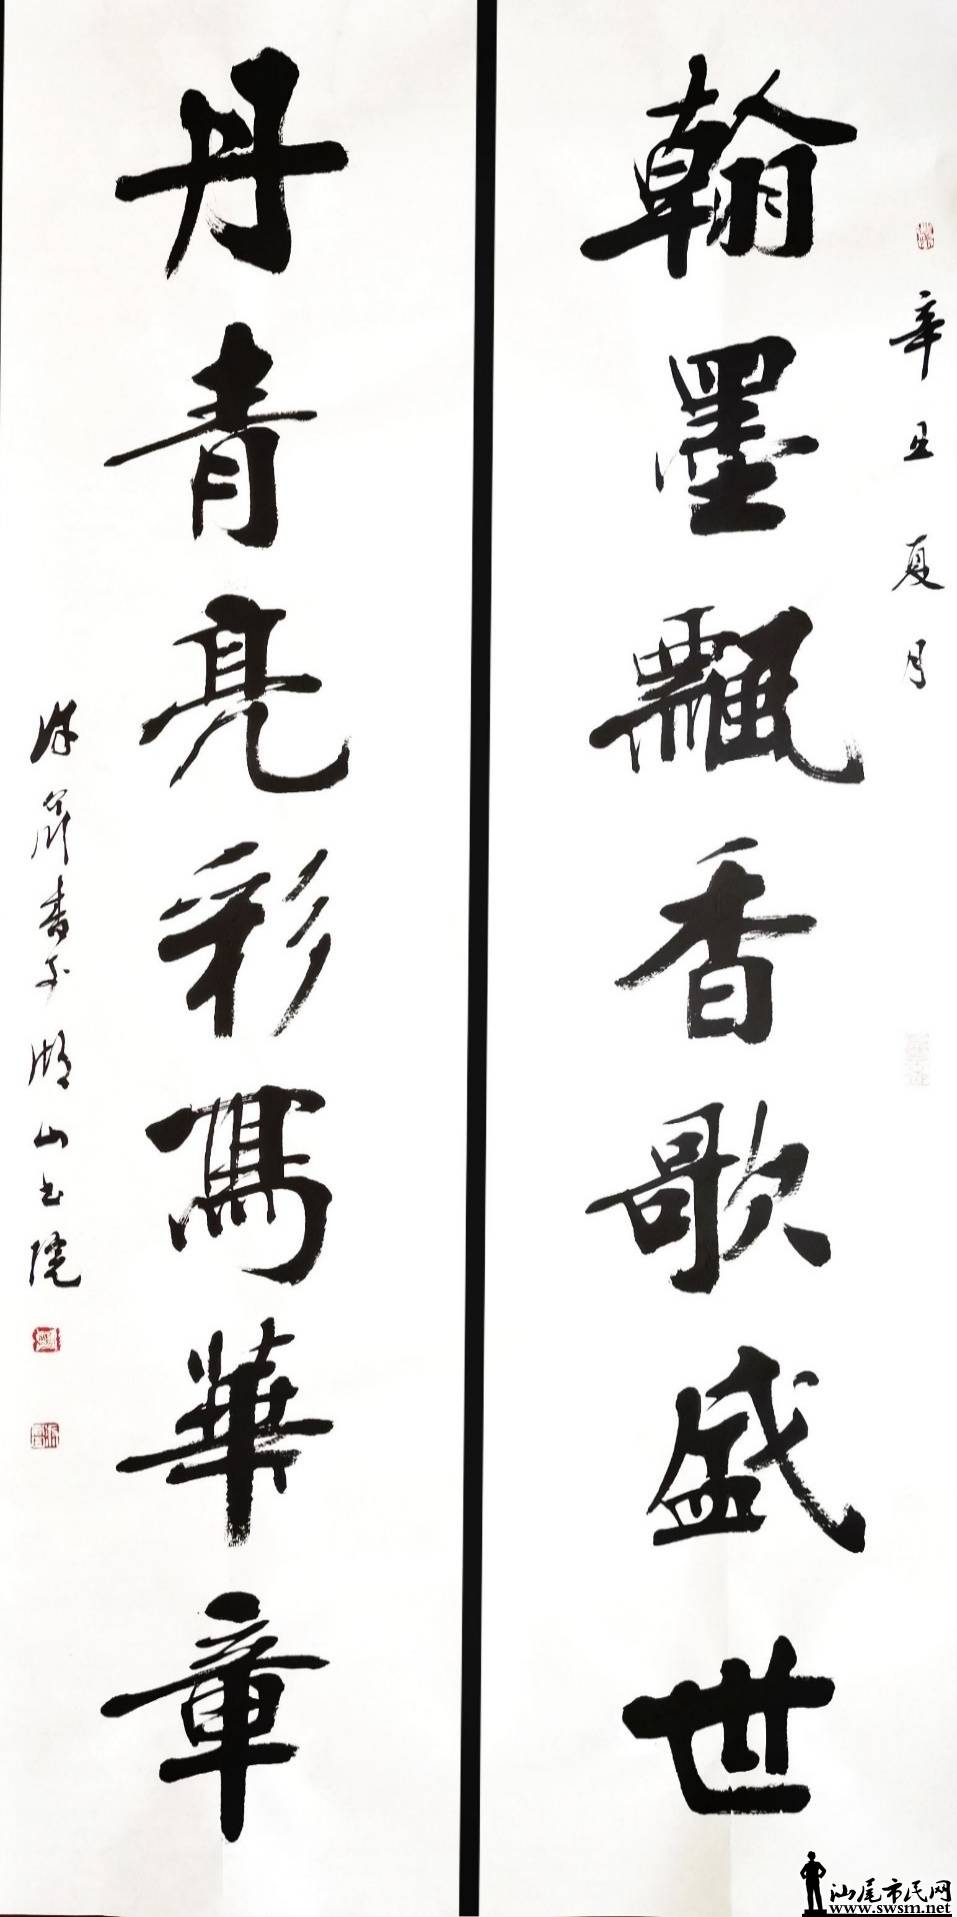 辛丑夏月
翰墨飄香歌盛世
丹青亮彩寫華章
書於湖山書院
汕尾市民网
www.swsm.net